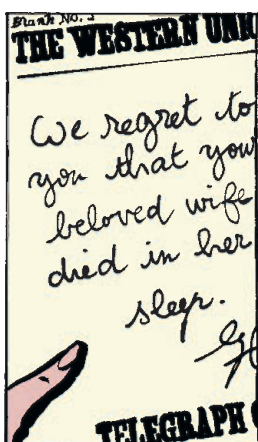 Branch NO. 2
THE WESTERN UNI
We regret to
you that your
beloved wife
died in her
sleep.
TELEGRAPH C